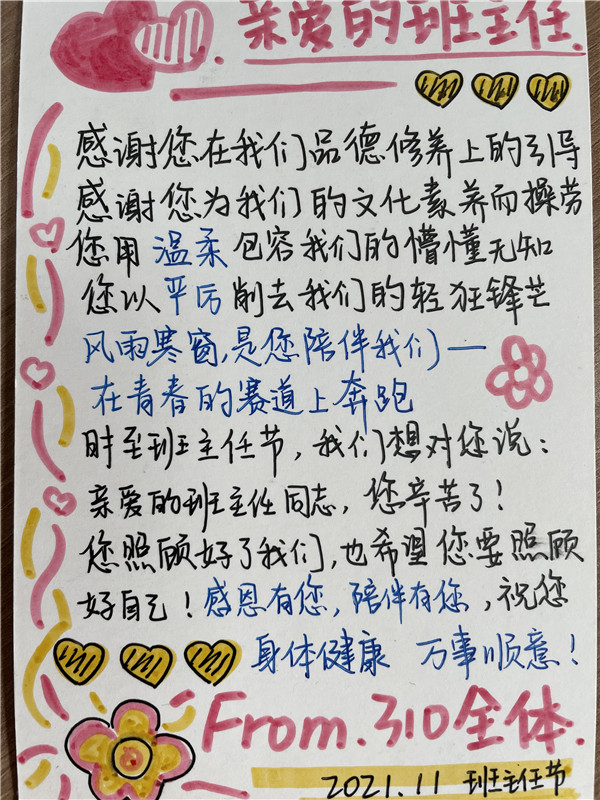 亲爱的班主任.
感谢您在我们品德修养上的引导
感谢您为我们的文化素养而操劳
您用温柔包容我们的懵懂无知
您以平厉削去我们的轻狂锋芒
风雨寒窗,是您陪伴我们—
在青春的赛道上奔跑
时至班主任节,我们想对您说:
亲爱的班主任同志,您辛苦了!
您照顾好了我们,也希望您要照顾
好自己!感恩有您,陪伴有您,祝您
身体健康 万事顺意!
From.310全体.
2021.11 班主任节